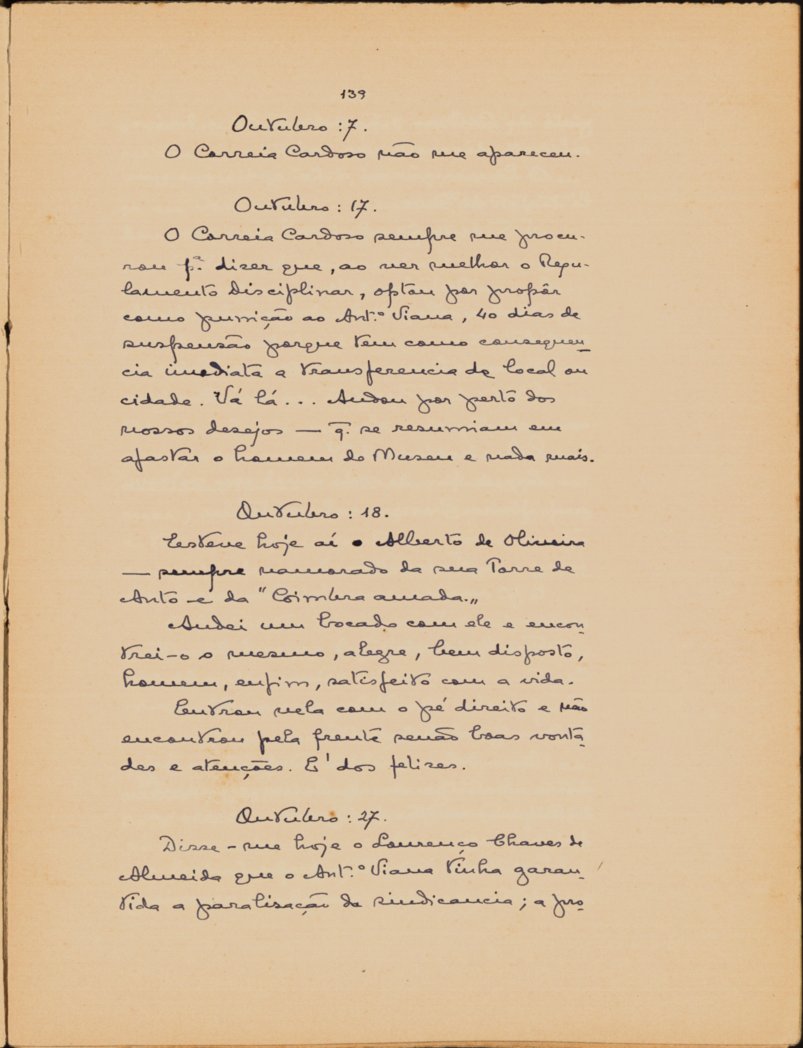 139
Outubro : 7.
O Correia Cardoso não me apareceu.
Outubro : 17.
O Correia Cardoso sempre me procu-
rou pª. dizer que, ao ver melhor o Regu-
lamento Disciplinar, optou por propôr
como punição ao Ant.º Viana, 40 dias de
suspensão porque tem como consequen-
cia imediata a transferencia de local ou
cidade. Vá lá... Andou por perto dos
nossos desejos — q. se resumiam em
afastar o homem do Museu e nada mais.
Outubro : 18.
Esteve hoje aí o Alberto de Oliveira
— sempre namorado da sua Torre de
Anto — e da "Coimbra amada."
Andei um bocado com ele e encon-
trei-o o mesmo, alegre, bem disposto,
homem, enfim, satisfeito com a vida.
Entrou nela com o pé direito e não
encontrou pela frente senão boas vonta-
des e atenções. E' dos felizes.
Outubro : 27.
Disse-me hoje o Lourenço Chaves de
Almeida que o Ant.º Viana tinha garan-
tida a paralisação da sindicancia; a pro-